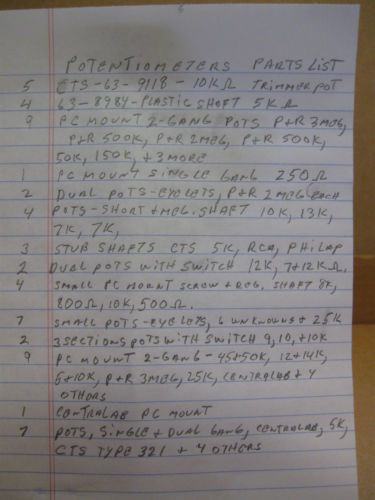 POTENTIOMETERS PARTS LIST
5 CTS-63-9118-10KΩ TRIMMER POT
4 63-8984-PLASTIC SHAFT 5KΩ
9 PC MOUNT 2-GANG POTS P+R 3MEG,
P+R 500K, P+R 2MEG, P+R 500K,
50K, 150K, +3 MORE
1 PC MOUNT SINGLE GANG 250Ω
2 DUAL POTS-EYELETS, P+R 2MEG EACH
4 POTS-SHORT + MEG. SHAFT 10K, 13K,
7K, 7K,
3 STUB SHAFTS CTS 5K, RCA, PHILAP
2 DUAL POTS WITH SWITCH 12K, 7+12KΩ.
4 SMALL PC MOUNT SCREW + REG. SHAFT 8K,
800Ω, 10K, 500Ω.
7 SMALL POTS-EYELETS, 6 UNKNOWNS + 25K
2 3SECTIONS POTS WITH SWITCH 9, 10, +10K
9 PC MOUNT 2-GANG-45+50K, 12+14K,
5+10K, P+R 3MEG, 25K, CENTRALAB + 4
OTHERS
1 CENTRALAB PC MOUNT
7 POTS, SINGLE + DUAL GANG, CENTRALAB, 5K,
CTS TYPE 321 + 4 OTHERS